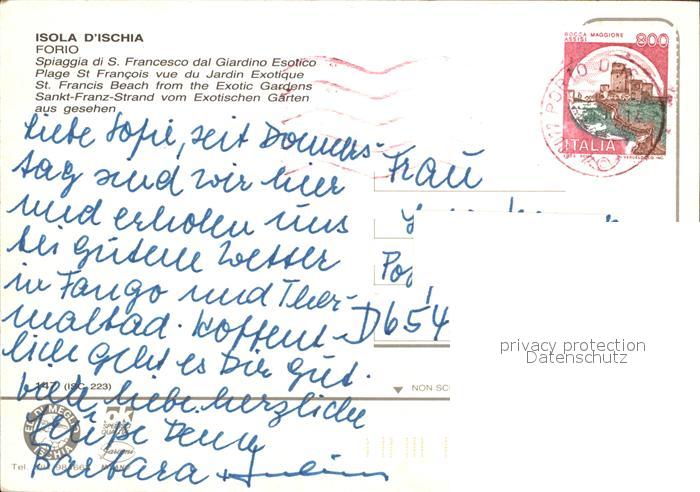 ISOLA D'ISCHIA
FORIO
Spiaggia di S. Francesco dal Giardino Esotico
Plage St François vue du Jardin Exotique
St. Francis Beach from the Exotic Gardens
Sankt-Franz-Strand vom Exotischen Garten
aus gesehen
ROCCA MAGGIORE
ASSISI
800
ITALIA
Liebe Sofie, seit Donners-
tag sind wir hier
und erholen uns
bei gutem Wetter
in Fango und Ther-
malbad. Hoffent-
lich geht es Dir gut.
Viele liebe herzliche
Grüße Deine
Barbara
Frau
D654
147 (ISC 223)
NON SC
ISCHIA
Tel.
MILANO
privacy protection
Datenschutz